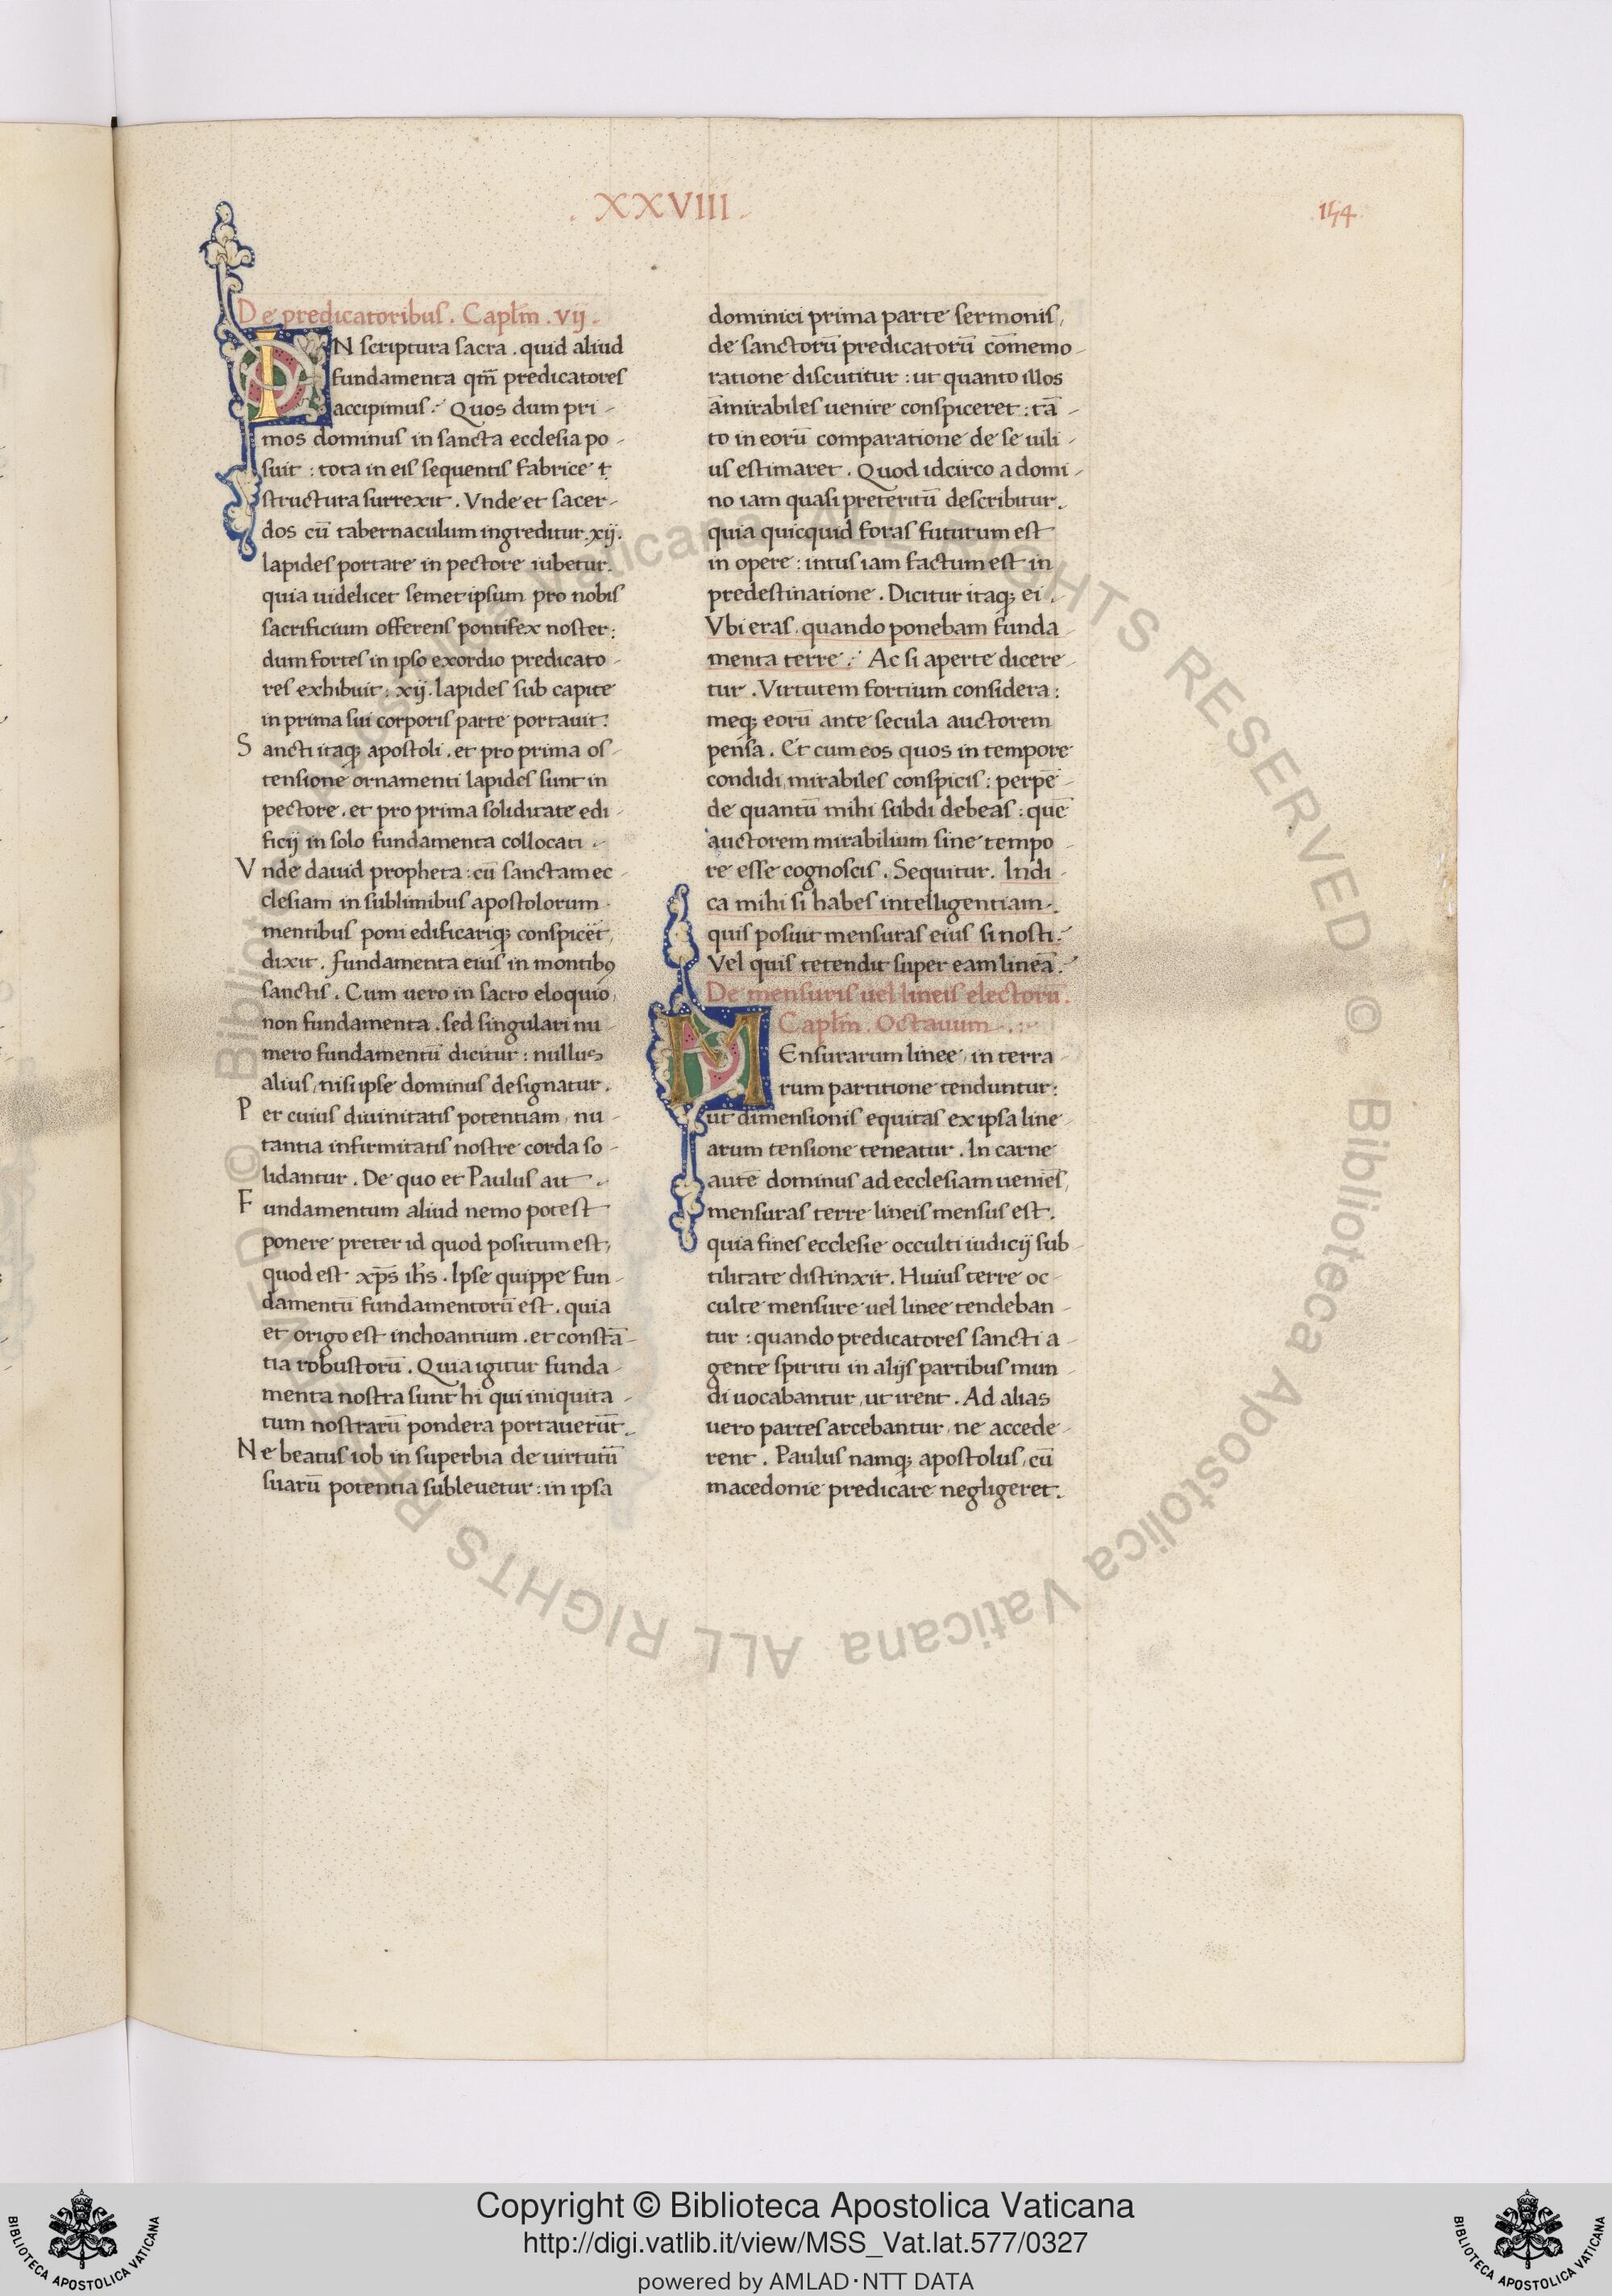 . XXVIII .
154
De predicatoribus . Capl̄m . vij .
IN scriptura sacra . quid aliud
fundamenta qm̄ predicatores
accipimus . Quos dum pri-
mos dominus in sancta ecclesia po-
suit : tota in eis sequentis fabrice
structura surrexit . Vnde et sacer-
dos cū tabernaculum ingreditur . xij .
lapides portare in pectore iubetur .
quia uidelicet semetipsum pro nobis
sacrificium offerens pontifex noster :
dum fortes in ipso exordio predicato-
res exhibuit : xij . lapides sub capite
in prima sui corporis parte portauit .
Sancti itaq; apostoli . et pro prima os-
tensione ornamenti lapides sunt in
pectore . et pro prima soliditate edi-
ficij in solo fundamenta collocati .
Vnde dauid propheta : cū sanctam ec-
clesiam in sublimibus apostolorum
mentibus poni edificariq; conspicēt ,
dixit . fundamenta eius in montibꝯ
sanctis . Cum uero in sacro eloquio ,
non fundamenta . sed singulari nu-
mero fundamentū dicitur : nullus
alius , nisi ipse dominus designatur .
Per cuius diuinitatis potentiam , nu-
tantia infirmitatis nostre corda so-
lidantur . De quo et Paulus ait .
Fundamentum aliud nemo potest
ponere preter id quod positum est ,
quod est xp̄s ih̄s . Ipse quippe fun-
damentū fundamentorū est . quia
et origo est inchoantium . et constā-
tia robustorū . Quia igitur funda-
menta nostra sunt hi qui iniquita-
tum nostrarū pondera portauerūt .
Ne beatus iob in superbia de uirtutū
suarū potentia subleuetur : in ipsa
dominici prima parte sermonis ,
de sanctorū predicatorū cōmemo-
ratione discutitur : ut quanto illos
āmirabiles uenire conspiceret : tā-
to in eorū comparatione de se uili-
us estimaret . Quod idcirco a domi-
no iam quasi preteritū describitur .
quia quicquid foras futurum est
in opere : intus iam factum est in
predestinatione . Dicitur itaq; ei .
Vbi eras . quando ponebam funda-
menta terre . Ac si aperte dicere-
tur . Virtutem fortium considera :
meq; eorū ante secula auctorem
pensa . Et cum eos quos in tempore
condidi , mirabiles conspicis : perpē-
de quantū mihi subdi debeas : quē
auctorem mirabilium sine tempo-
re esse cognoscis . Sequitur . Indi-
ca mihi si habes intelligentiam .
quis posuit mensuras eius si nosti .
Vel quis tetendit super eam lineā .
De mensuris uel lineis electorū .
Capl̄m . Octauum .
MEnsurarum linee , in terra-
rum partitione tenduntur :
ut dimensionis equitas ex ipsa line-
arum tensione teneatur . In carne
autē dominus ad ecclesiam ueniēs ,
mensuras terre lineis mensus est .
quia fines ecclesie occulti iudicij sub-
tilitate distinxit . Huius terre oc-
culte mensure uel linee tendeban-
tur : quando predicatores sancti a-
gente spiritu in alijs partibus mun-
di uocabantur , ut irent . Ad alias
uero partes arcebantur , ne accede-
rent . Paulus namq; apostolus , cū
macedonie predicare negligeret .
© Biblioteca Apostolica Vaticana ALL RIGHTS RESERVED © Biblioteca Apostolica Vaticana ALL RIGHTS RESERVED
BIBLIOTECA APOSTOLICA VATICANA
Copyright © Biblioteca Apostolica Vaticana
http://digi.vatlib.it/view/MSS_Vat.lat.577/0327
powered by AMLAD·NTT DATA
BIBLIOTECA APOSTOLICA VATICANA